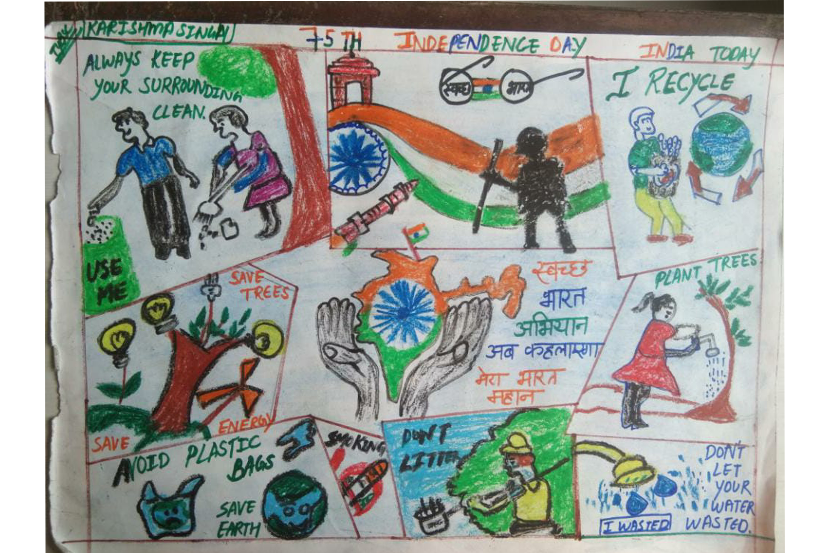 KARISHMA SINGH
75TH INDEPENDENCE DAY
INDIA TODAY
ALWAYS KEEP
YOUR SURROUNDING
CLEAN.
USE
ME
स्वच्छ भारत
I RECYCLE
SAVE
TREES
SAVE
ENERGY
स्वच्छ
भारत
अभियान
अब कहलाएगा
मेरा भारत
महान
PLANT TREES
AVOID PLASTIC
BAGS
SAVE
EARTH
SMOKING
DON'T
LITTER
DON'T
LET
YOUR
WATER
WASTED.
I WASTED